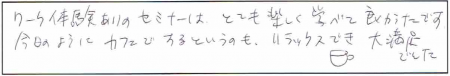 ワーク体験ありのセミナーは、とても楽しく学べて良かったです
今日のように カフェでするというのも、リラックスでき 大満足
でした